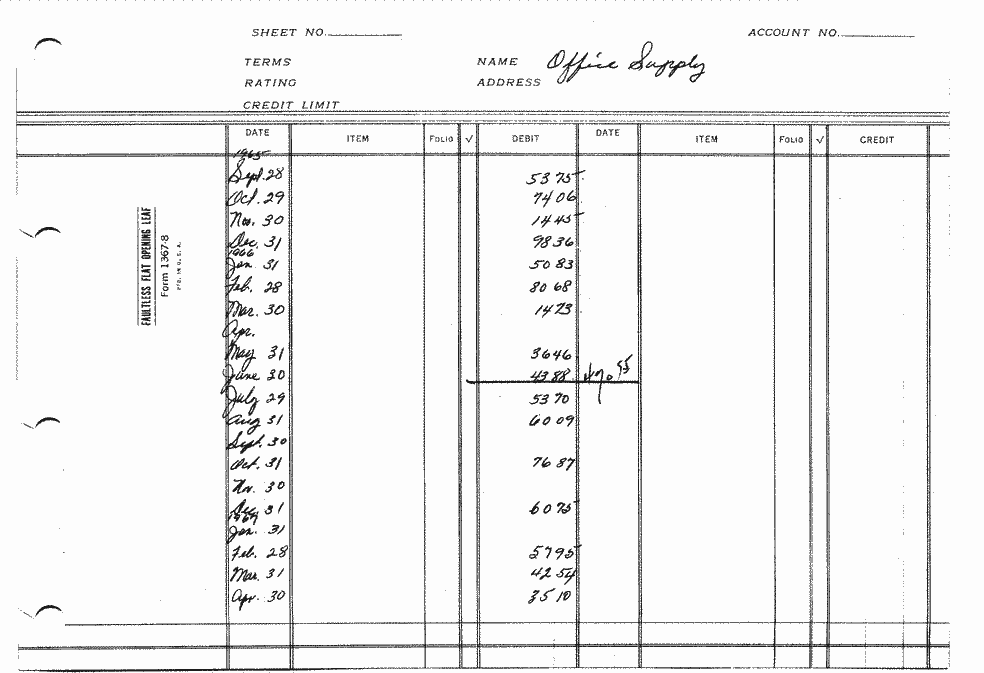 SHEET NO. ACCOUNT NO.
TERMS NAME Office Supply
RATING ADDRESS
CREDIT LIMIT
DATE ITEM FOLIO √ DEBIT DATE ITEM FOLIO √ CREDIT
1965
Sept. 28 53 75
Oct. 29 74 06
Nov. 30 14 45
Dec. 31 98 36
1966
Jan. 31 50 83
Feb. 28 80 68
Mar. 30 14 73
Apr.
May 31 36 46
June 30 43 88
July 29 53 70
Aug 31 60 09
Sept. 30
Oct. 31 76 87
Nov. 30
Dec. 31 60 75
1967
Jan. 31
Feb. 28 57 95
Mar. 31 42 54
Apr. 30 35 10
FAULTLESS FLAT OPENING LEAF
Form 1367-8
MFD. IN U. S. A.